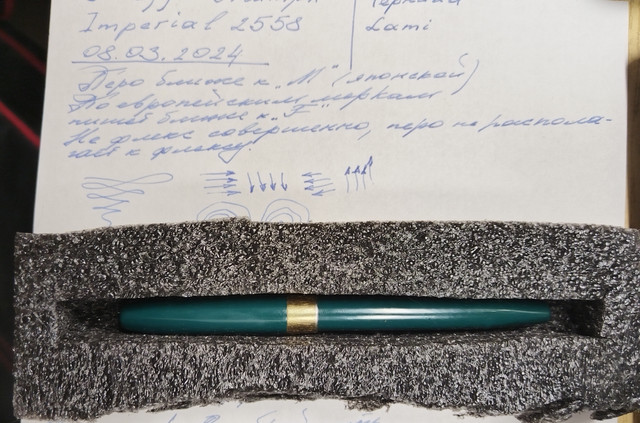 Imperial 2558
Lami
08.03.2024
Перо ближе к „М" (японской)
По европейским меркам
пишет ближе к „F".
Не флекс совершенно, перо не распола-
гает к флексу.